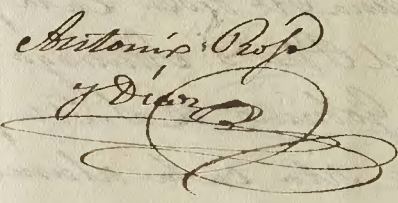 Antonio Rosa
y Díaz